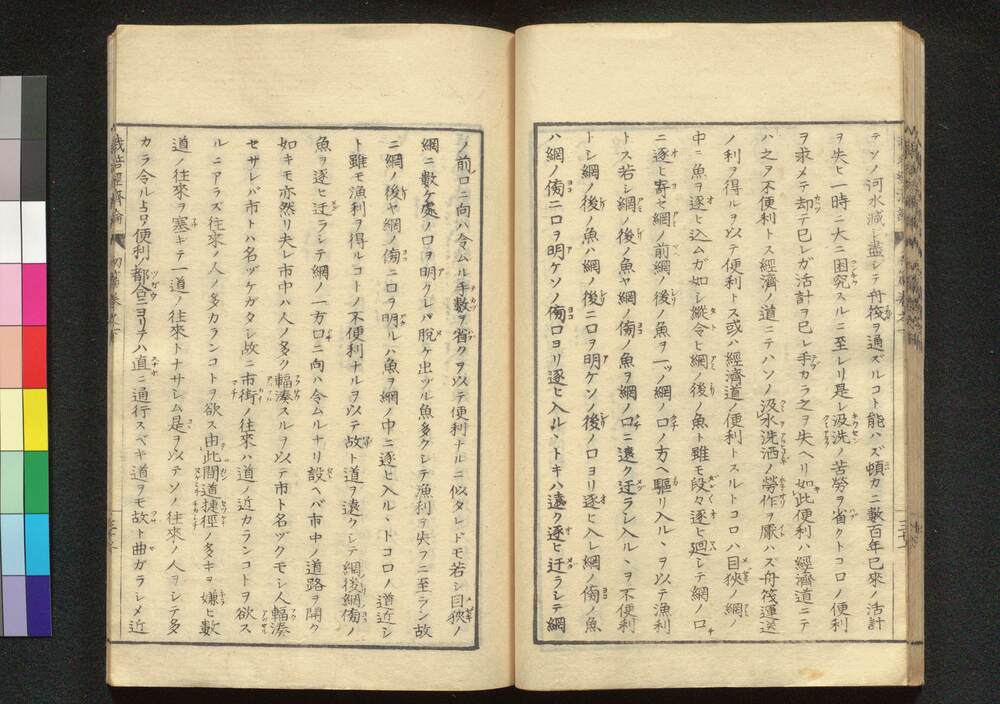 テソノ河水減シ盡シテ舟筏ヲ通ズルコト能ハズ頓カニ數百年已來ノ活計
ヲ失ヒ一時ニ大ニ困究スルニ至レリ是レ汲洗ノ苦勞ヲ省クトコロノ便利
ヲ求メテ却テ己レガ活計ヲ己レ手カラ之ヲ失ヘリ如此便利ハ經濟道ニテ
ハ之ヲ不便利トス經濟ノ道ニテハソノ汲水洗洒ノ勞作ヲ厭ハズ舟筏運送
ノ利ヲ得ルヲ以テ便利トス或ハ經濟道ノ便利トスルトコロハ目狹ノ網ノ
中ニ魚ヲ逐ヒ込ムガ如シ縱令ヒ網ノ後ノ魚ト雖モ段々逐ヒ廻シテ網ノ口
ニ逐ヒ寄セ網ノ前網ノ後ノ魚ヲ一ツノ網ノ口ノ方ヘ驅リ入ルヽヲ以テ漁利
トス若シ網ノ後ノ魚ヤ網ノ傍ノ魚ヲ網ノ口ニ遠ク迂ラシ入ルヽヲ不便利
トシ網ノ後ノ魚ハ網ノ後ニ口ヲ明ケソノ後ノ口ヨリ逐ヒ入レ網ノ傍ノ魚
ハ網ノ傍ニ口ヲ明ケソノ傍ノ口ヨリ逐ヒ入ルヽトキハ遠ク逐ヒ迂ラシテ網
ノ前口ニ向ハ令ムル手數ヲ省クヲ以テ便利ナルニ似タレドモ若シ目狹ノ
網ニ數ケ處ノ口ヲ明クレバ脫ケ出ヅル魚多クシテ漁利ヲ失フニ至ラン故
ニ網ノ後ヤ網ノ傍ニ口ヲ明ルハ魚ヲ網ノ中ニ逐ヒ入ルヽトコロノ道近シ
ト雖モ漁利ヲ得ルコトノ不便利ナルヲ以テ故ト道ヲ遠クシテ網後網傍ノ
魚ヲ逐ヒ迂ラシテ網ノ一方口ニ向ハ令ムルナリ設ヘバ市中ノ道路ヲ開ク
如キモ亦然リ夫レ市中ハ人ノ多ク輻湊スルヲ以テ市ト名ヅクモシ人輻湊
セサレバ市トハ名ヅケガタシ故ニ市街ノ往來ハ道ノ近カランコトヲ欲ス
ルニアラズ往來ノ人ノ多カランコトヲ欲ス由此間道捷徑ノ多キヲ嫌ヒ數
道ノ往來ヲ塞キテ一道ノ往來トナサシム是ヲ以テソノ往來ノ人ヲシテ多
カラ令ル占ロノ便利都合ニヨリテハ直ニ通行スベキ道ヲモ故ト曲ガラシメ近
栽培經濟論
初篇卷之下